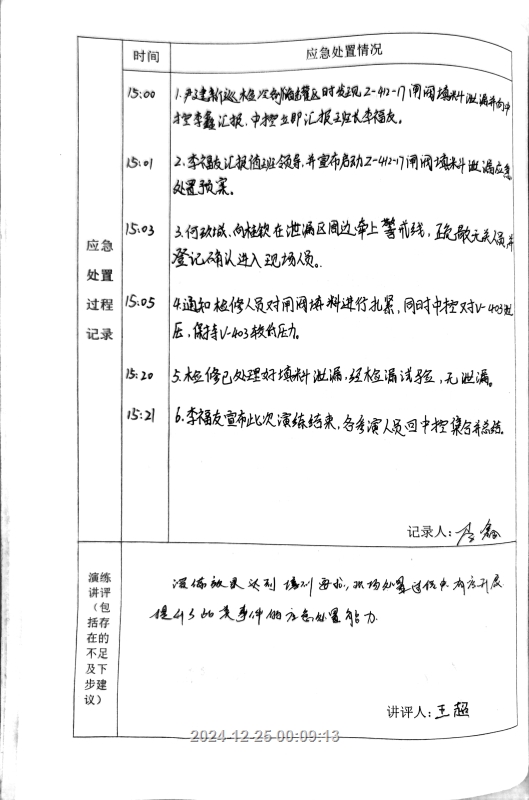 时间
应急处置情况
15:00
1.严建新巡检冷剂储罐区时发现Z-412-17闸阀填料泄漏并向中
控李鑫汇报,中控立即汇报班长李福友。
15:01
2.李福友汇报值班领导,并宣布启动Z-412-17闸阀填料泄漏应急
处置预案。
15:03
3.何玖城、向桂钦在泄漏区周边牵上警戒线,疏散无关人员并
登记确认进入现场人员。
应急
处置
过程
记录
15:05
4.通知检修人员对闸阀填料进行扎紧,同时中控对V-403泄
压,保持V-403较低压力。
15:20
5.检修已处理好填料泄漏,经检漏试验,无泄漏。
15:21
6.李福友宣布此次演练结束,各参演人员回中控集合并总结。
记录人:李鑫
演练
讲评
(包
括存
在的
不足
及下
步建
议)
演练效果达到预期要求,现场处置过程中有序开展
提升了的类事件的应急处置能力
讲评人:王超
2024-12-25 00:09:13